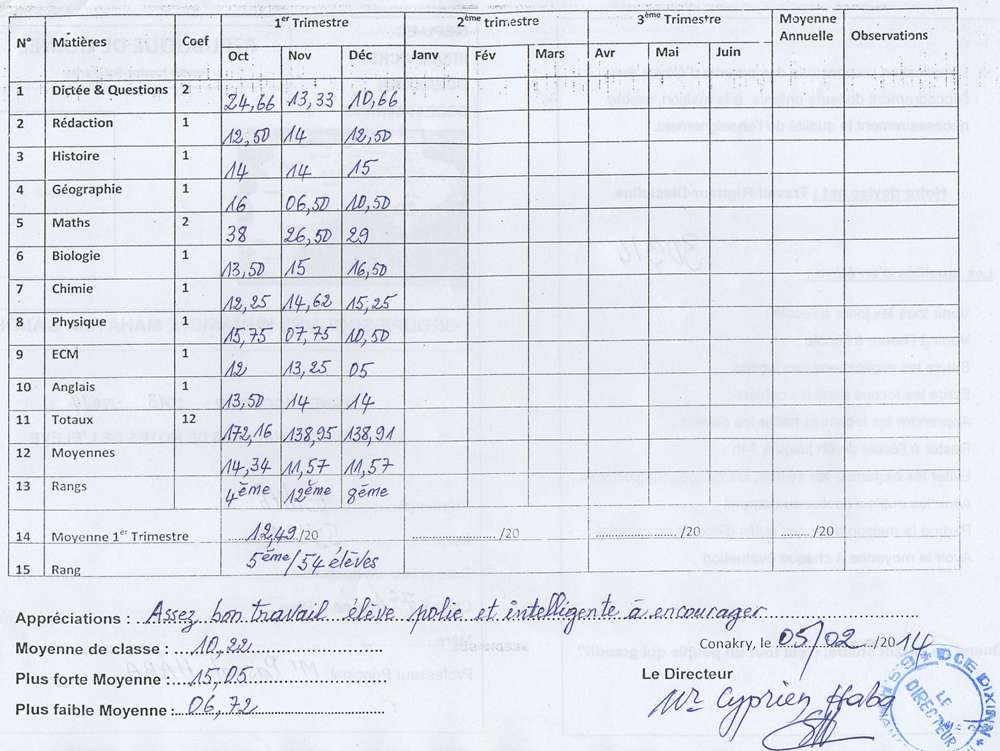 N° Matières Coef 1er Trimestre 2ème trimestre 3ème Trimestre Moyenne Annuelle Observations
Oct Nov Déc Janv Fév Mars Avr Mai Juin
1 Dictée & Questions 24,66 13,33 10,66
2 Rédaction 1 12,50 14 12,50
3 Histoire 1 14 14 15
4 Géographie 1 16 06,50 10,50
5 Maths 2 38 26,50 29
6 Biologie 1 13,50 15 16,50
7 Chimie 1 12,25 14,62 15,25
8 Physique 1 15,75 07,75 10,50
9 ECM 1 12 13,25 05
10 Anglais 1 13,50 14 14
11 Totaux 12 172,16 138,95 138,91
12 Moyennes 14,34 11,57 11,57
13 Rangs 4ème 12ème 8ème
14 Moyenne 1er Trimestre 12,49/20 /20 /20 /20
15 Rang 5ème/54 élèves
Appréciations : Assez bon travail élève polie et intelligente à encourager
Moyenne de classe : 10,22
Conakry, le 05/02/2014
Plus forte Moyenne : 15,05
Le Directeur
Plus faible Moyenne : 06,72
Mr Cyprien Haba
DCE DIXINN
LE DIRECTEUR